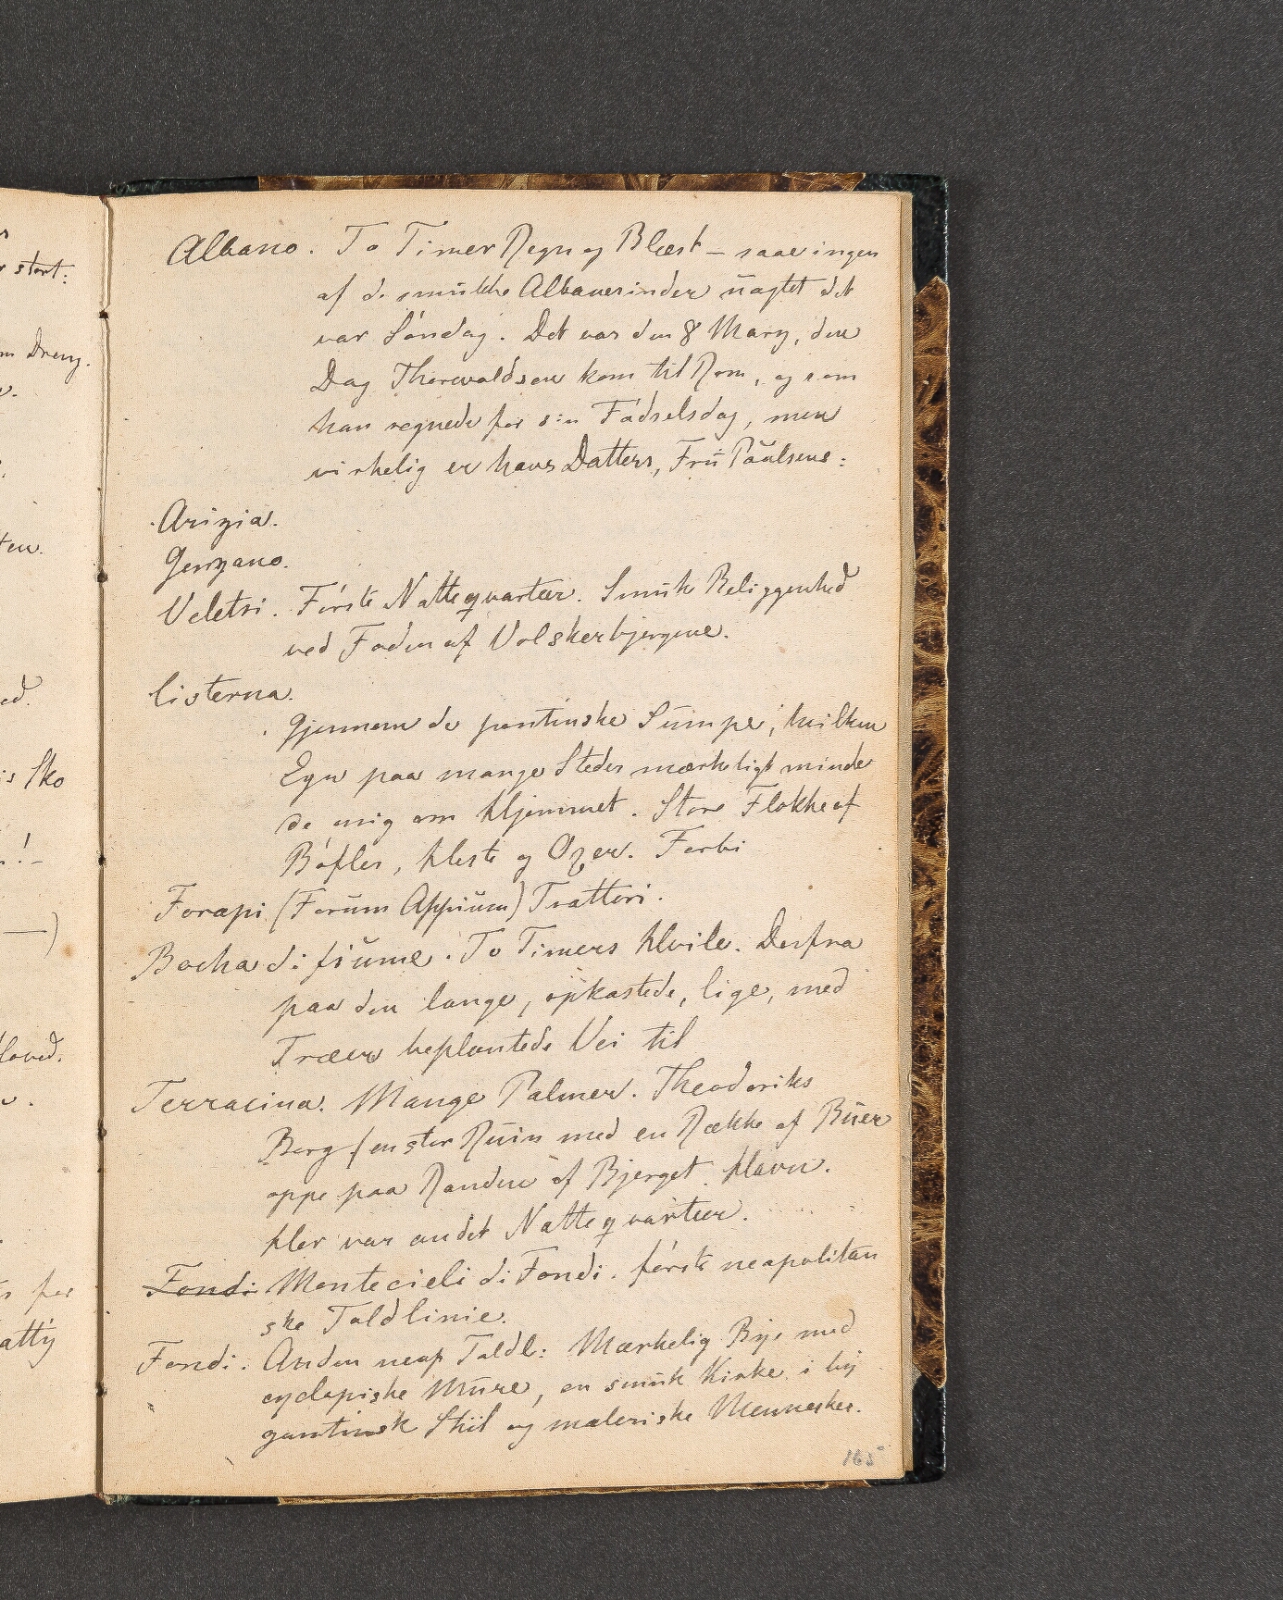 Albano. To Timer Regn og Blæst – saae ingen
af de smukke Albanerinder uagtet det
var Söndag. Det var den 8 Marz, den
Dag Thorwaldsen kom til Rom, og som
han regnede for sin Födselsdag, men
virkelig er hans Datters, Fru Paulsens:
Arizia.
Genzano.
Veletri. Förste Natteqvarteer. Smuk Beliggenhed
ved Foden af Volskerbjergene.
Cisterna.
Gjennem de pontinske Sümpe, hvilken
Egn paa mange Steder mærkeligt minde
de mig om Hjemmet. Store Flokke af
Böfler, Heste og Oxer. Forbi
Forapi (Forum Appium) Trattori.
Bocka di fiume. To Timers Hvile. Derfra
paa den lange, opkastede, lige, med
Træer beplantede Vei til
Terracina. Mange Palmer. Theodoriks
Borg (en stor Ruin med en Række af Buer
oppe paa Randen af Bjerget. Havn.
Her var andet Natteqvarteer.
Fondi Montecieli di Fondi. förste neapolitan
ske Toldlinie.
Fondi. Anden neap Toldl: Mærkelig Bye med
cyclopiske Mure, en smuk Kirke i by
gantinsk Stiil og maleriske Mennesker.
165
r start:
m Dreng.
ten.
ed.
is Sko
n! –
—)
loved.
s for
atty